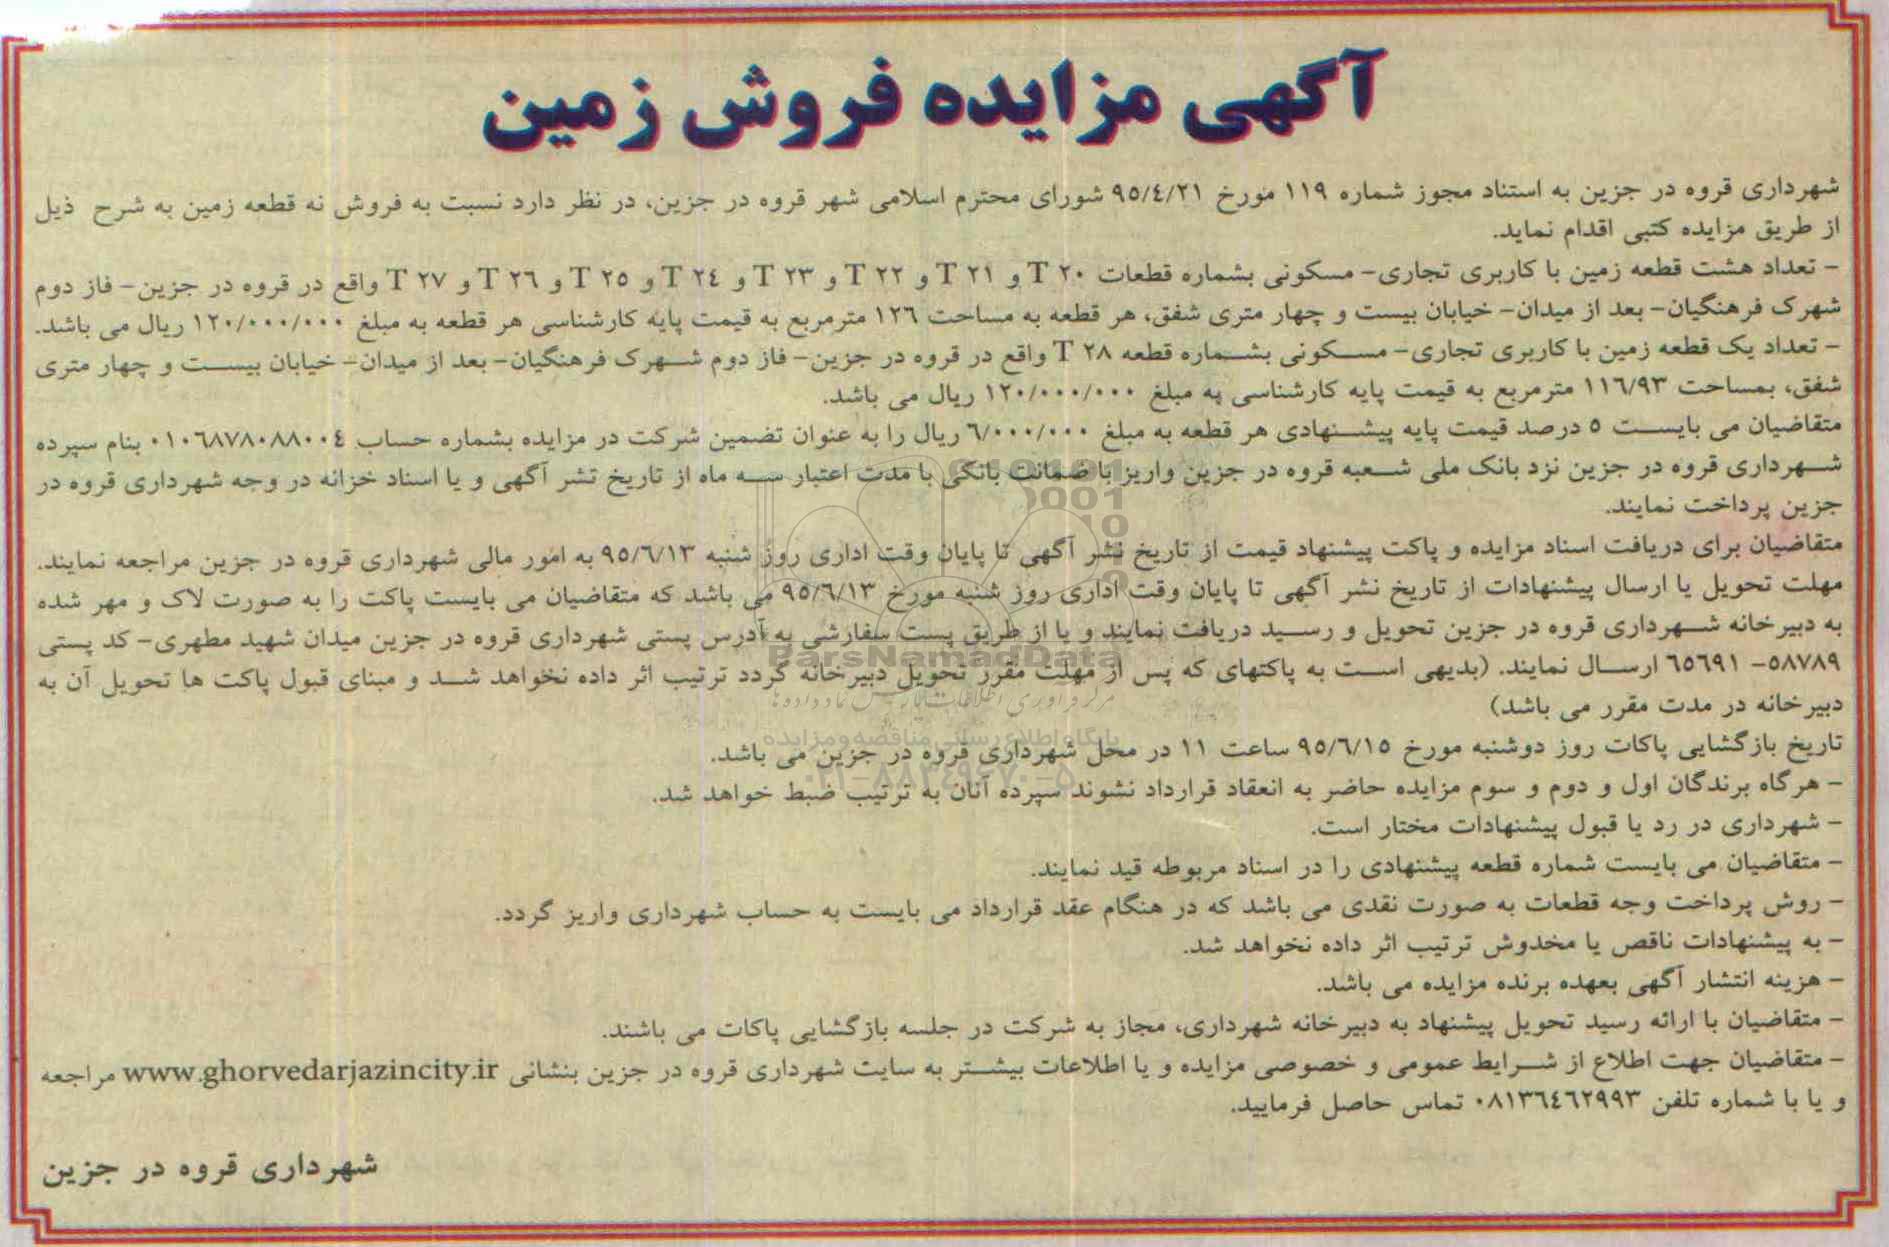 آگهی مزایده فروش زمین
شهرداری قروه در جزین به استناد مجوز شماره ۱۱۹ مورخ ۹۵/٤/۲۱ شورای محترم اسلامی شهر قروه در جزین، در نظر دارد نسبت به فروش نه قطعه زمین به شرح ذیل
از طریق مزایده کتبی اقدام نماید.
- تعداد هشت قطعه زمین با کاربری تجاری- مسکونی بشماره قطعات T ۲۰ و T ۲۱ و T ۲۲ و T ۲۳ و T ۲٤ و T ۲۵ و T ۲٦ و T ۲۷ واقع در قروه در جزین- فاز دوم
شهرک فرهنگیان- بعد از میدان- خیابان بیست و چهار متری شفق، هر قطعه به مساحت ۱۲٦ مترمربع به قیمت پایه کارشناسی هر قطعه به مبلغ ۱۲۰/۰۰۰/۰۰۰ ریال می باشد.
- تعداد یک قطعه زمین با کاربری تجاری- مسکونی بشماره قطعه T ۲۸ واقع در قروه در جزین- فاز دوم شهرک فرهنگیان- بعد از میدان- خیابان بیست و چهار متری
شفق، بمساحت ۱۱٦/۹۳ مترمربع به قیمت پایه کارشناسی به مبلغ ۱۲۰/۰۰۰/۰۰۰ ریال می باشد.
متقاضیان می بایست ۵ درصد قیمت پایه پیشنهادی هر قطعه به مبلغ ٦/۰۰۰/۰۰۰ ریال را به عنوان تضمین شرکت در مزایده بشماره حساب ۰۱۰٦۸۷۸۰۸۸۰۰٤ بنام سپرده
شهرداری قروه در جزین نزد بانک ملی شعبه قروه در جزین واریز یا ضمانت بانکی با مدت اعتبار سه ماه از تاریخ نشر آگهی و یا اسناد خزانه در وجه شهرداری قروه در
جزین پرداخت نمایند.
متقاضیان برای دریافت اسناد مزایده و پاکت پیشنهاد قیمت از تاریخ نشر آگهی تا پایان وقت اداری روز شنبه ۹۵/٦/۱۳ به امور مالی شهرداری قروه در جزین مراجعه نمایند.
مهلت تحویل یا ارسال پیشنهادات از تاریخ نشر آگهی تا پایان وقت اداری روز شنبه مورخ ۹۵/٦/۱۳ می باشد که متقاضیان می بایست پاکت را به صورت لاک و مهر شده
به دبیرخانه شهرداری قروه در جزین تحویل و رسید دریافت نمایند و یا از طریق پست سفارشی به آدرس پستی شهرداری قروه در جزین میدان شهید مطهری- کد پستی
۵۸۷۸۹- ٦۵٦۹۱ ارسال نمایند. (بدیهی است به پاکتهای که پس از مهلت مقرر تحویل دبیرخانه گردد ترتیب اثر داده نخواهد شد و مبنای قبول پاکت ها تحویل آن به
دبیرخانه در مدت مقرر می باشد)
تاریخ بازگشایی پاکات روز دوشنبه مورخ ۹۵/٦/۱۵ ساعت ۱۱ در محل شهرداری قروه در جزین می باشد.
- هرگاه برندگان اول و دوم و سوم مزایده حاضر به انعقاد قرارداد نشوند سپرده آنان به ترتیب ضبط خواهد شد.
- شهرداری در رد یا قبول پیشنهادات مختار است.
- متقاضیان می بایست شماره قطعه پیشنهادی را در اسناد مربوطه قید نمایند.
- روش پرداخت وجه قطعات به صورت نقدی می باشد که در هنگام عقد قرارداد می بایست به حساب شهرداری واریز گردد.
- به پیشنهادات ناقص یا مخدوش ترتیب اثر داده نخواهد شد.
- هزینه انتشار آگهی بعهده برنده مزایده می باشد.
- متقاضیان با ارائه رسید تحویل پیشنهاد به دبیرخانه شهرداری، مجاز به شرکت در جلسه بازگشایی پاکات می باشند.
- متقاضیان جهت اطلاع از شرایط عمومی و خصوصی مزایده و یا اطلاعات بیشتر به سایت شهرداری قروه در جزین بنشانی www.ghorvedarjazincity.ir مراجعه
و یا با شماره تلفن ۰۸۱۳٦٤٦۲۹۹۳ تماس حاصل فرمایید.
شهرداری قروه در جزین
ParsNamadData
پایگاه اطلاع رسانی مناقصه و مزایده